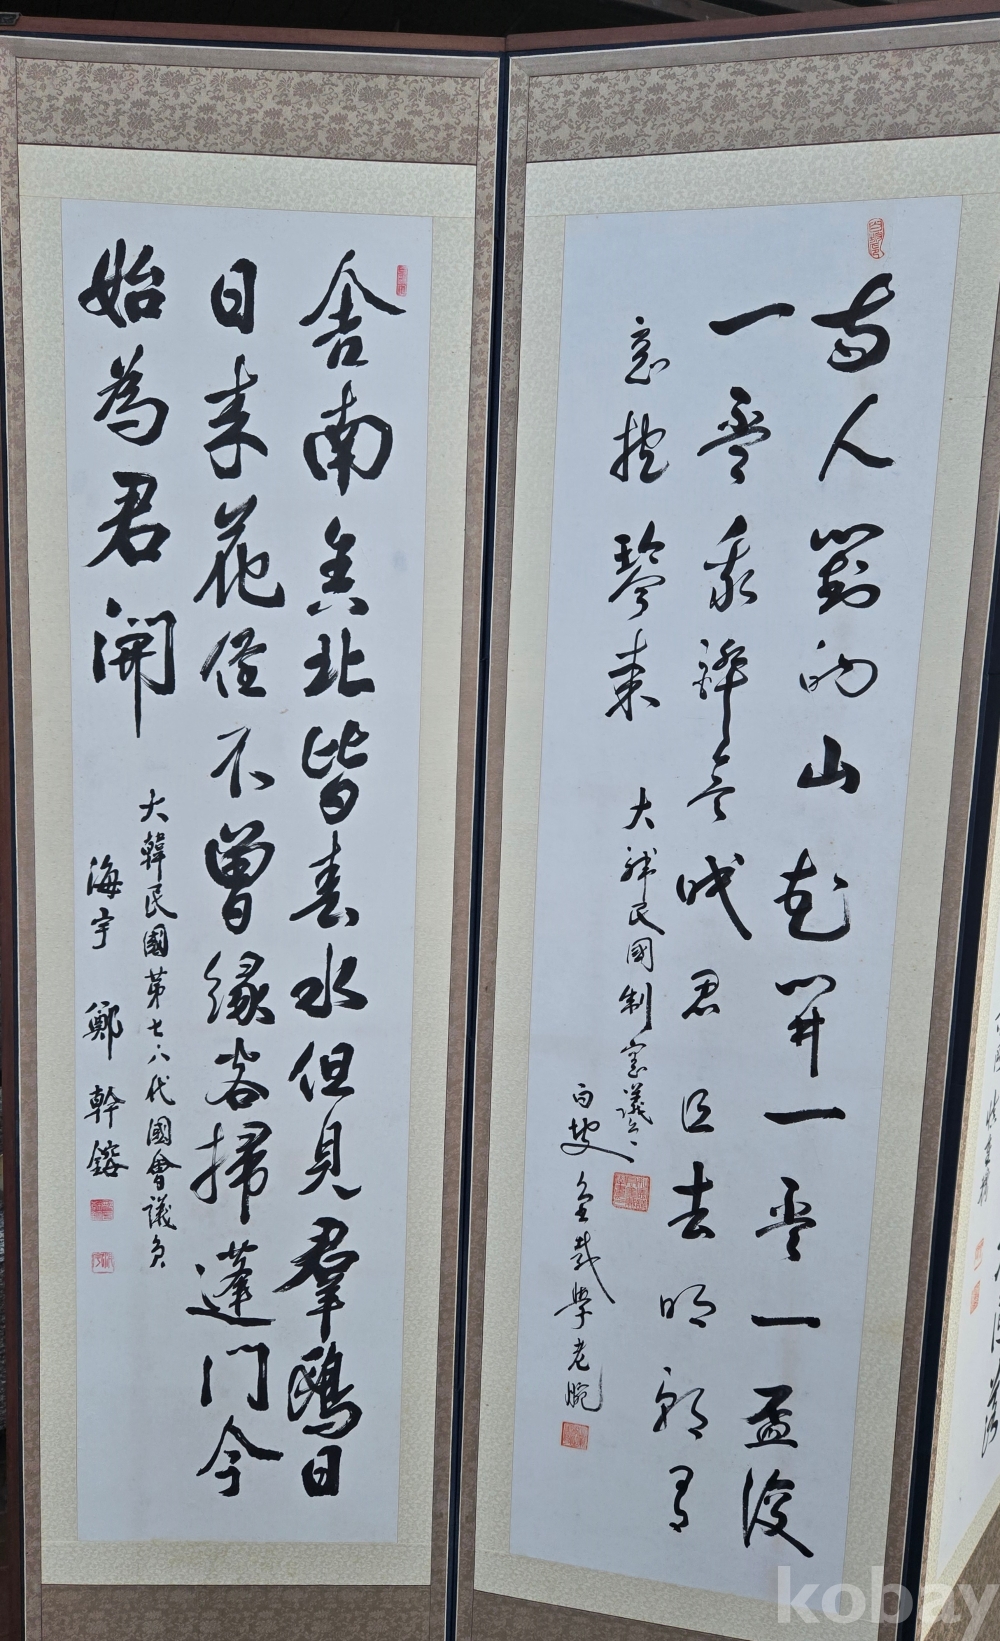 兩人對酌山花開一盃一盃復
一盃我醉欲眠君且去明朝有
意抱琴來
大韓民國制憲議員
白坡 金載學老腕
舍南舍北皆春水但見羣鷗日
日來花徑不曾緣客掃蓬門今
始為君開
大韓民國第七八代國會議員
海宇 鄭幹鎔
kobay